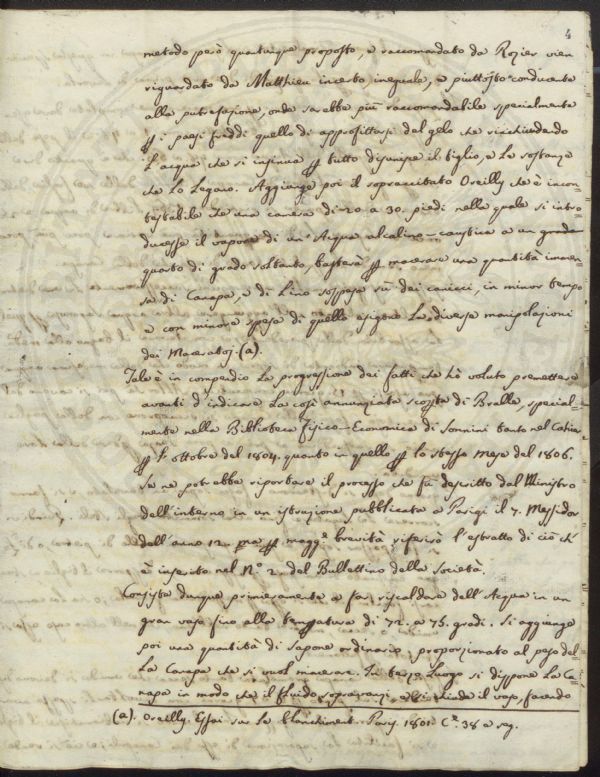 4
metodo però quantunque proposto, e raccomandato da Rozier vien
riguardato da Matthieu incerto, ineguale, e piuttosto conducente
alla putrefazione, onde sarebbe più raccomandabile specialmente
p i paesi freddi quello di approfittarsi del gelo che rinchiudendo
l'acqua che si insinua p tutto disunisce il tiglio, e le sostanze
che lo legano. Aggiunge poi il sopraccitato Oreilly che è incon=
testabile che una camera di 20 a 30. piedi nella quale si intro=
ducesse il vapore di un'Acqua alcalino-caustica a un grado
quarto di grado soltanto, basterà p macerare una quantità immen=
sa di Canapa, e di Lino sospesa sù dei canicci, in minor tempo
e con minore spesa di quello esigono le diverse manipolazioni
dei Maceratoj. (a).
Tale è in compendio la progressione dei fatti che hò voluto premettere
avanti d'indicare la così annunziata scoperta di Bralle, special=
mente nella Biblioteca fisico-Economica di Sonnini tanto nel Cahier
p l'ottobre del 1804. quanto in quello p lo stesso mese del 1806.
Se ne potrebbe riportare il processo che fù descritto dal Ministro
dell'interno in un istruzione pubblicata a Parigi il 7. Messidor
dell'anno 12. ma p magg.e brevità riferirò l'estratto di ciò ch'
è inserito nel N.o 2. del Bullettino della Società.
Consiste dunque primieramente a far riscaldare dell'Acqua in un
gran vaso fino alla temperatura di 72. a 75. gradi. Si aggiunge
poi una quantità di sapone ordinario, proporzionato al peso del=
la Canapa che si vuol macerare. In terzo luogo si dispone la Ca=
napa in modo che il fluido sopravanzi, e si chiude il vaso, facendo
(a). Oreilly. Essai sur le blanchiment. Parij. 1801. C.e 38 e seg.